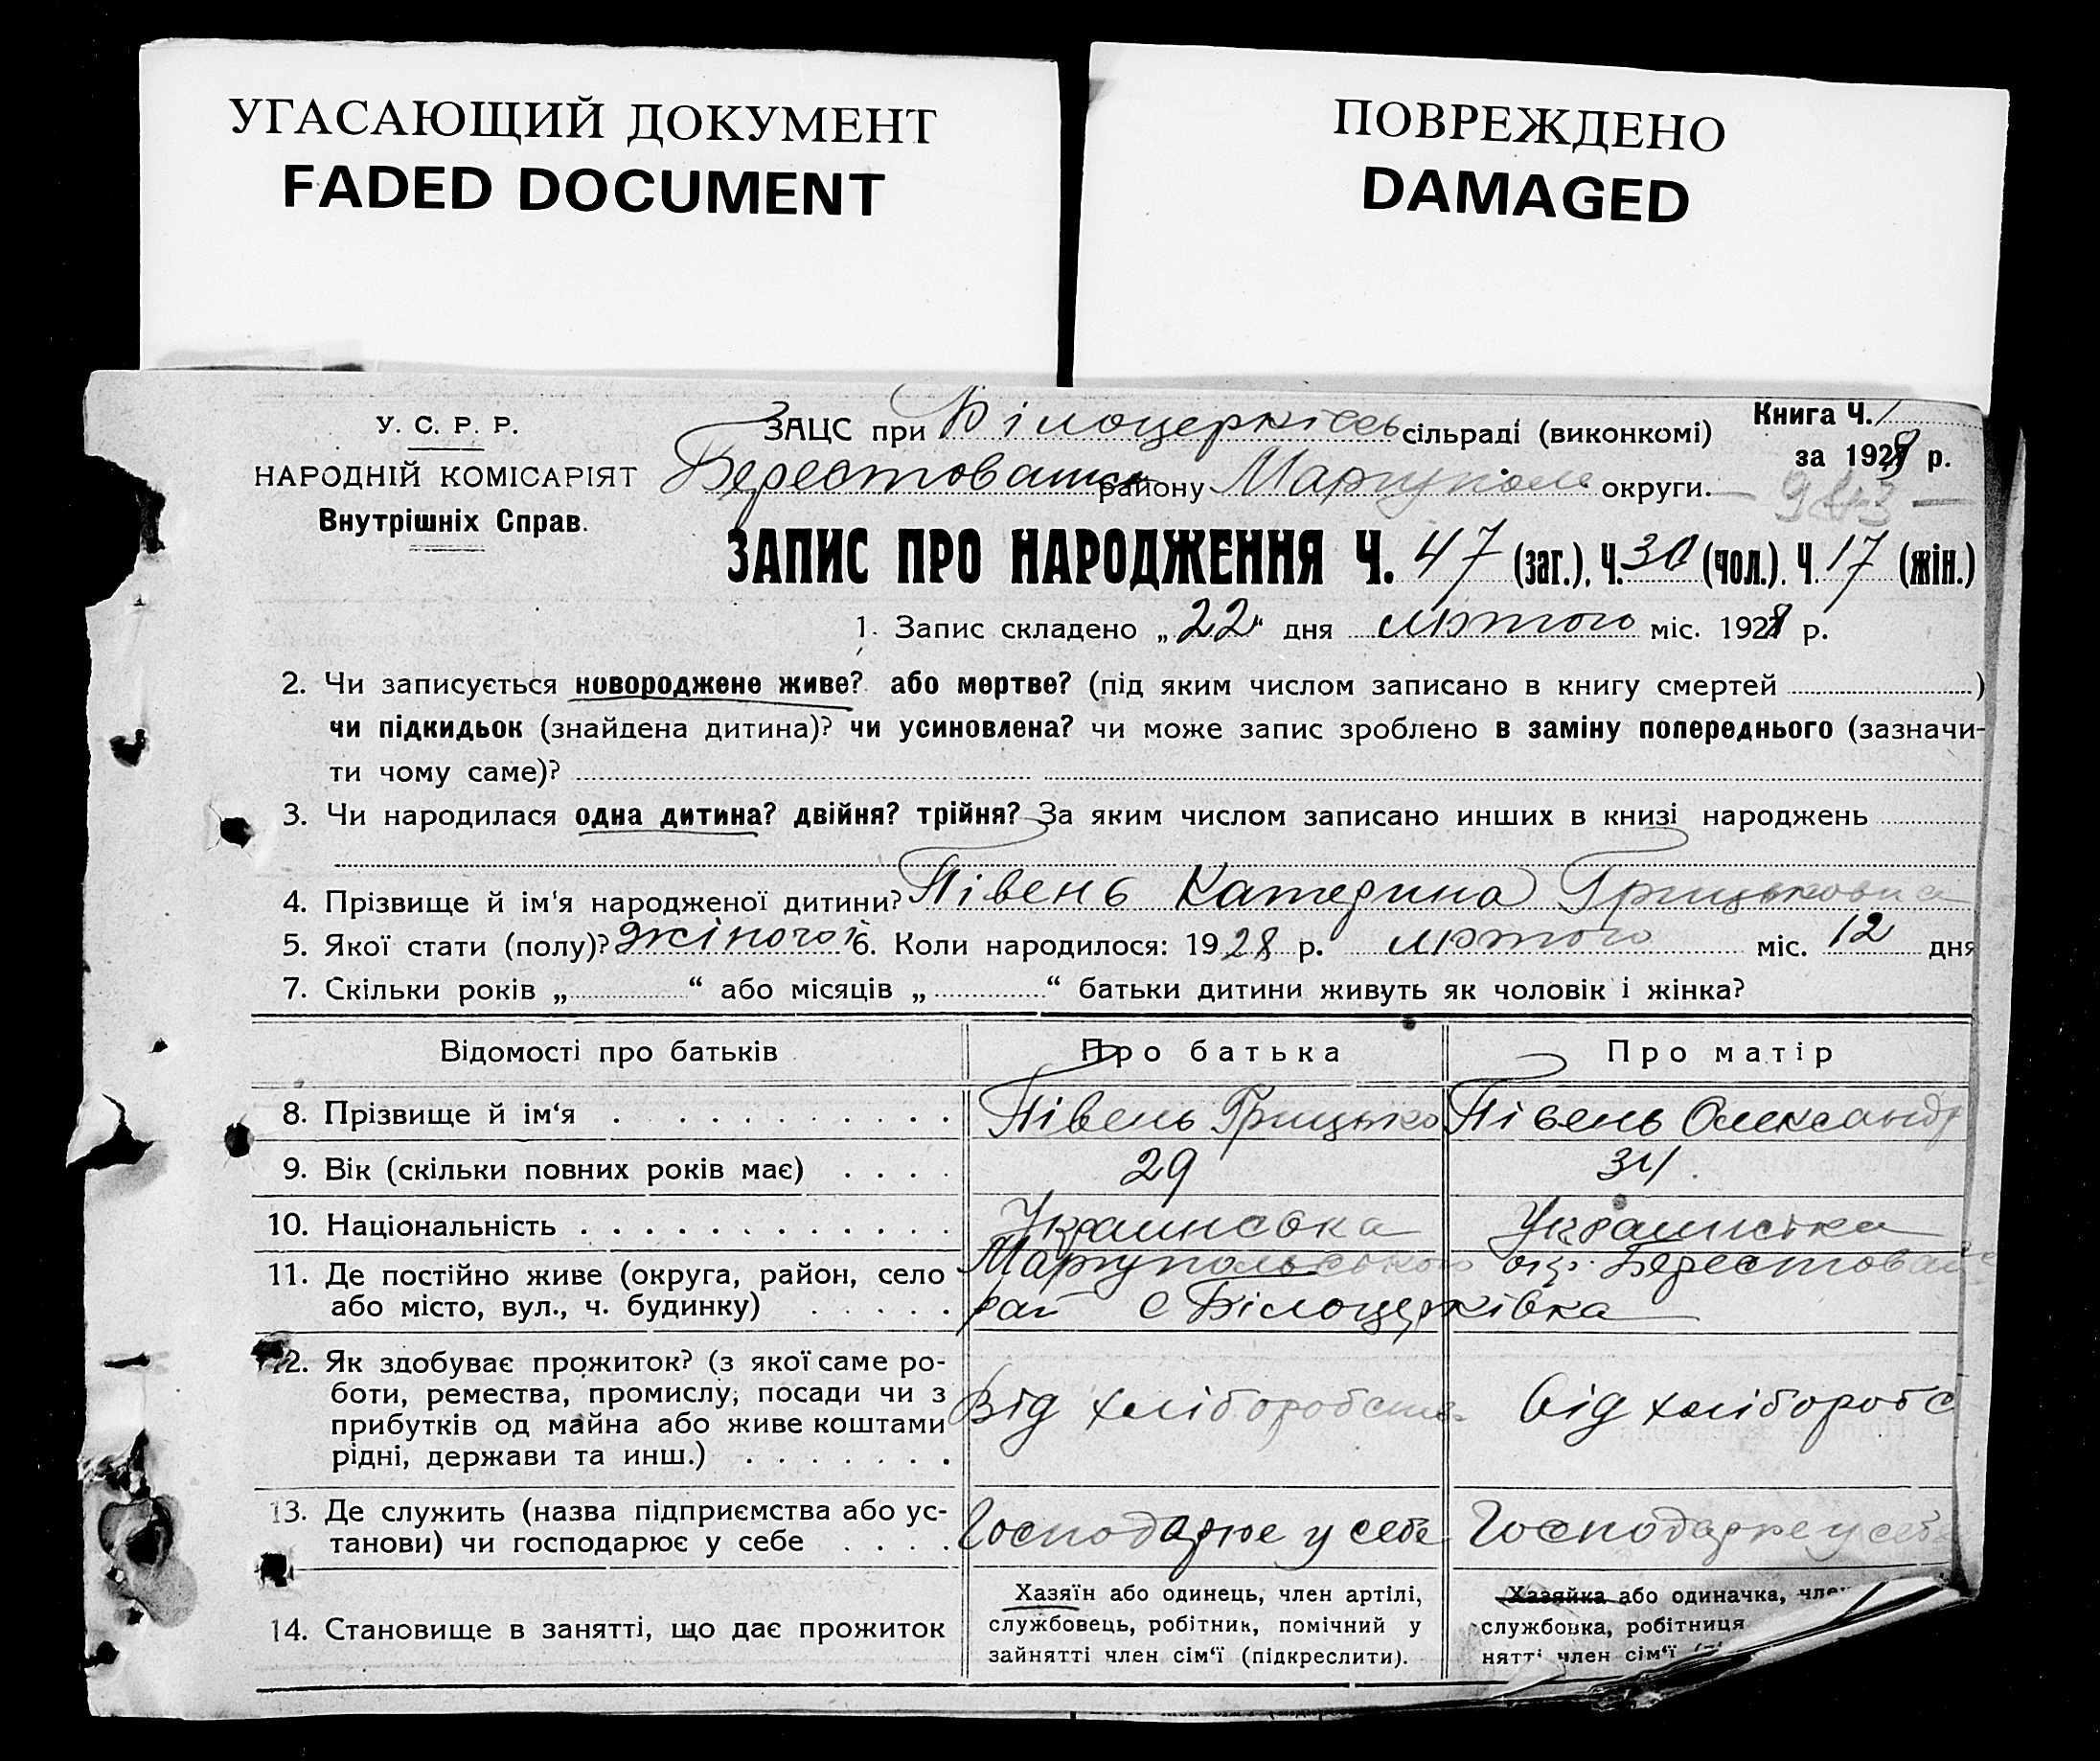 УГАСАЮЩИЙ ДОКУМЕНТ
FADED DOCUMENT
ПОВРЕЖДЕНО
DAMAGED
У. С. Р. Р.
НАРОДНІЙ КОМІСАРІЯТ
Внутрішніх Справ.
ЗАЦС при Білоцерківсь сільраді (виконкомі)
Берестованськ району Маріупольс округи.
Книга Ч. 1
за 1928 р.
943
ЗАПИС ПРО НАРОДЖЕННЯ Ч. 47 (заг.). Ч. 30 (чол.). Ч. 17 (жін.)
1. Запис складено „ 22 “ дня лютого міс. 1928 р.
2. Чи записується новороджене живе? або мертве? (під яким числом записано в книгу смертей )
чи підкидьок (знайдена дитина)? чи усиновлена? чи може запис зроблено в заміну попереднього (зазначи-
ти чому саме)?
3. Чи народилася одна дитина? двійня? трійня? За яким числом записано инших в книзі народжень
4. Прізвище й ім'я народженої дитини? Півень Катерина Грицьковна
5. Якої стати (полу)? жіночої 6. Коли народилося: 1928 р. лютого міс. 12 дня
7. Скільки років „ “ або місяців „ “ батьки дитини живуть як чоловік і жінка?
Відомості про батьків Про батька Про матір
8. Прізвище й ім‘я Півень Грицько Півень Олександр
9. Вік (скільки повних років має) 29 31
10. Національність Украинська Украинська
11. Де постійно живе (округа, район, село Маріупольської окр. Берестованс
або місто, вул., ч. будинку) рай с Білоцерківка
12. Як здобуває прожиток? (з якої саме ро-
боти, ремества, промислу, посади чи з Від хліборобства від хліборобс
прибутків од майна або живе коштами
рідні, держави та инш.)
13. Де служить (назва підприємства або ус- Господарює у себе Господарює у себе
танови) чи господарює у себе
14. Становище в занятті, що дає прожиток
Хазяїн або одинець, член артілі,
службовець, робітник, помічний у
зайнятті член сім‘ї (підкреслити).
Хазяйка або одиначка, член
службовка, робітниця
нятті член сім‘ї